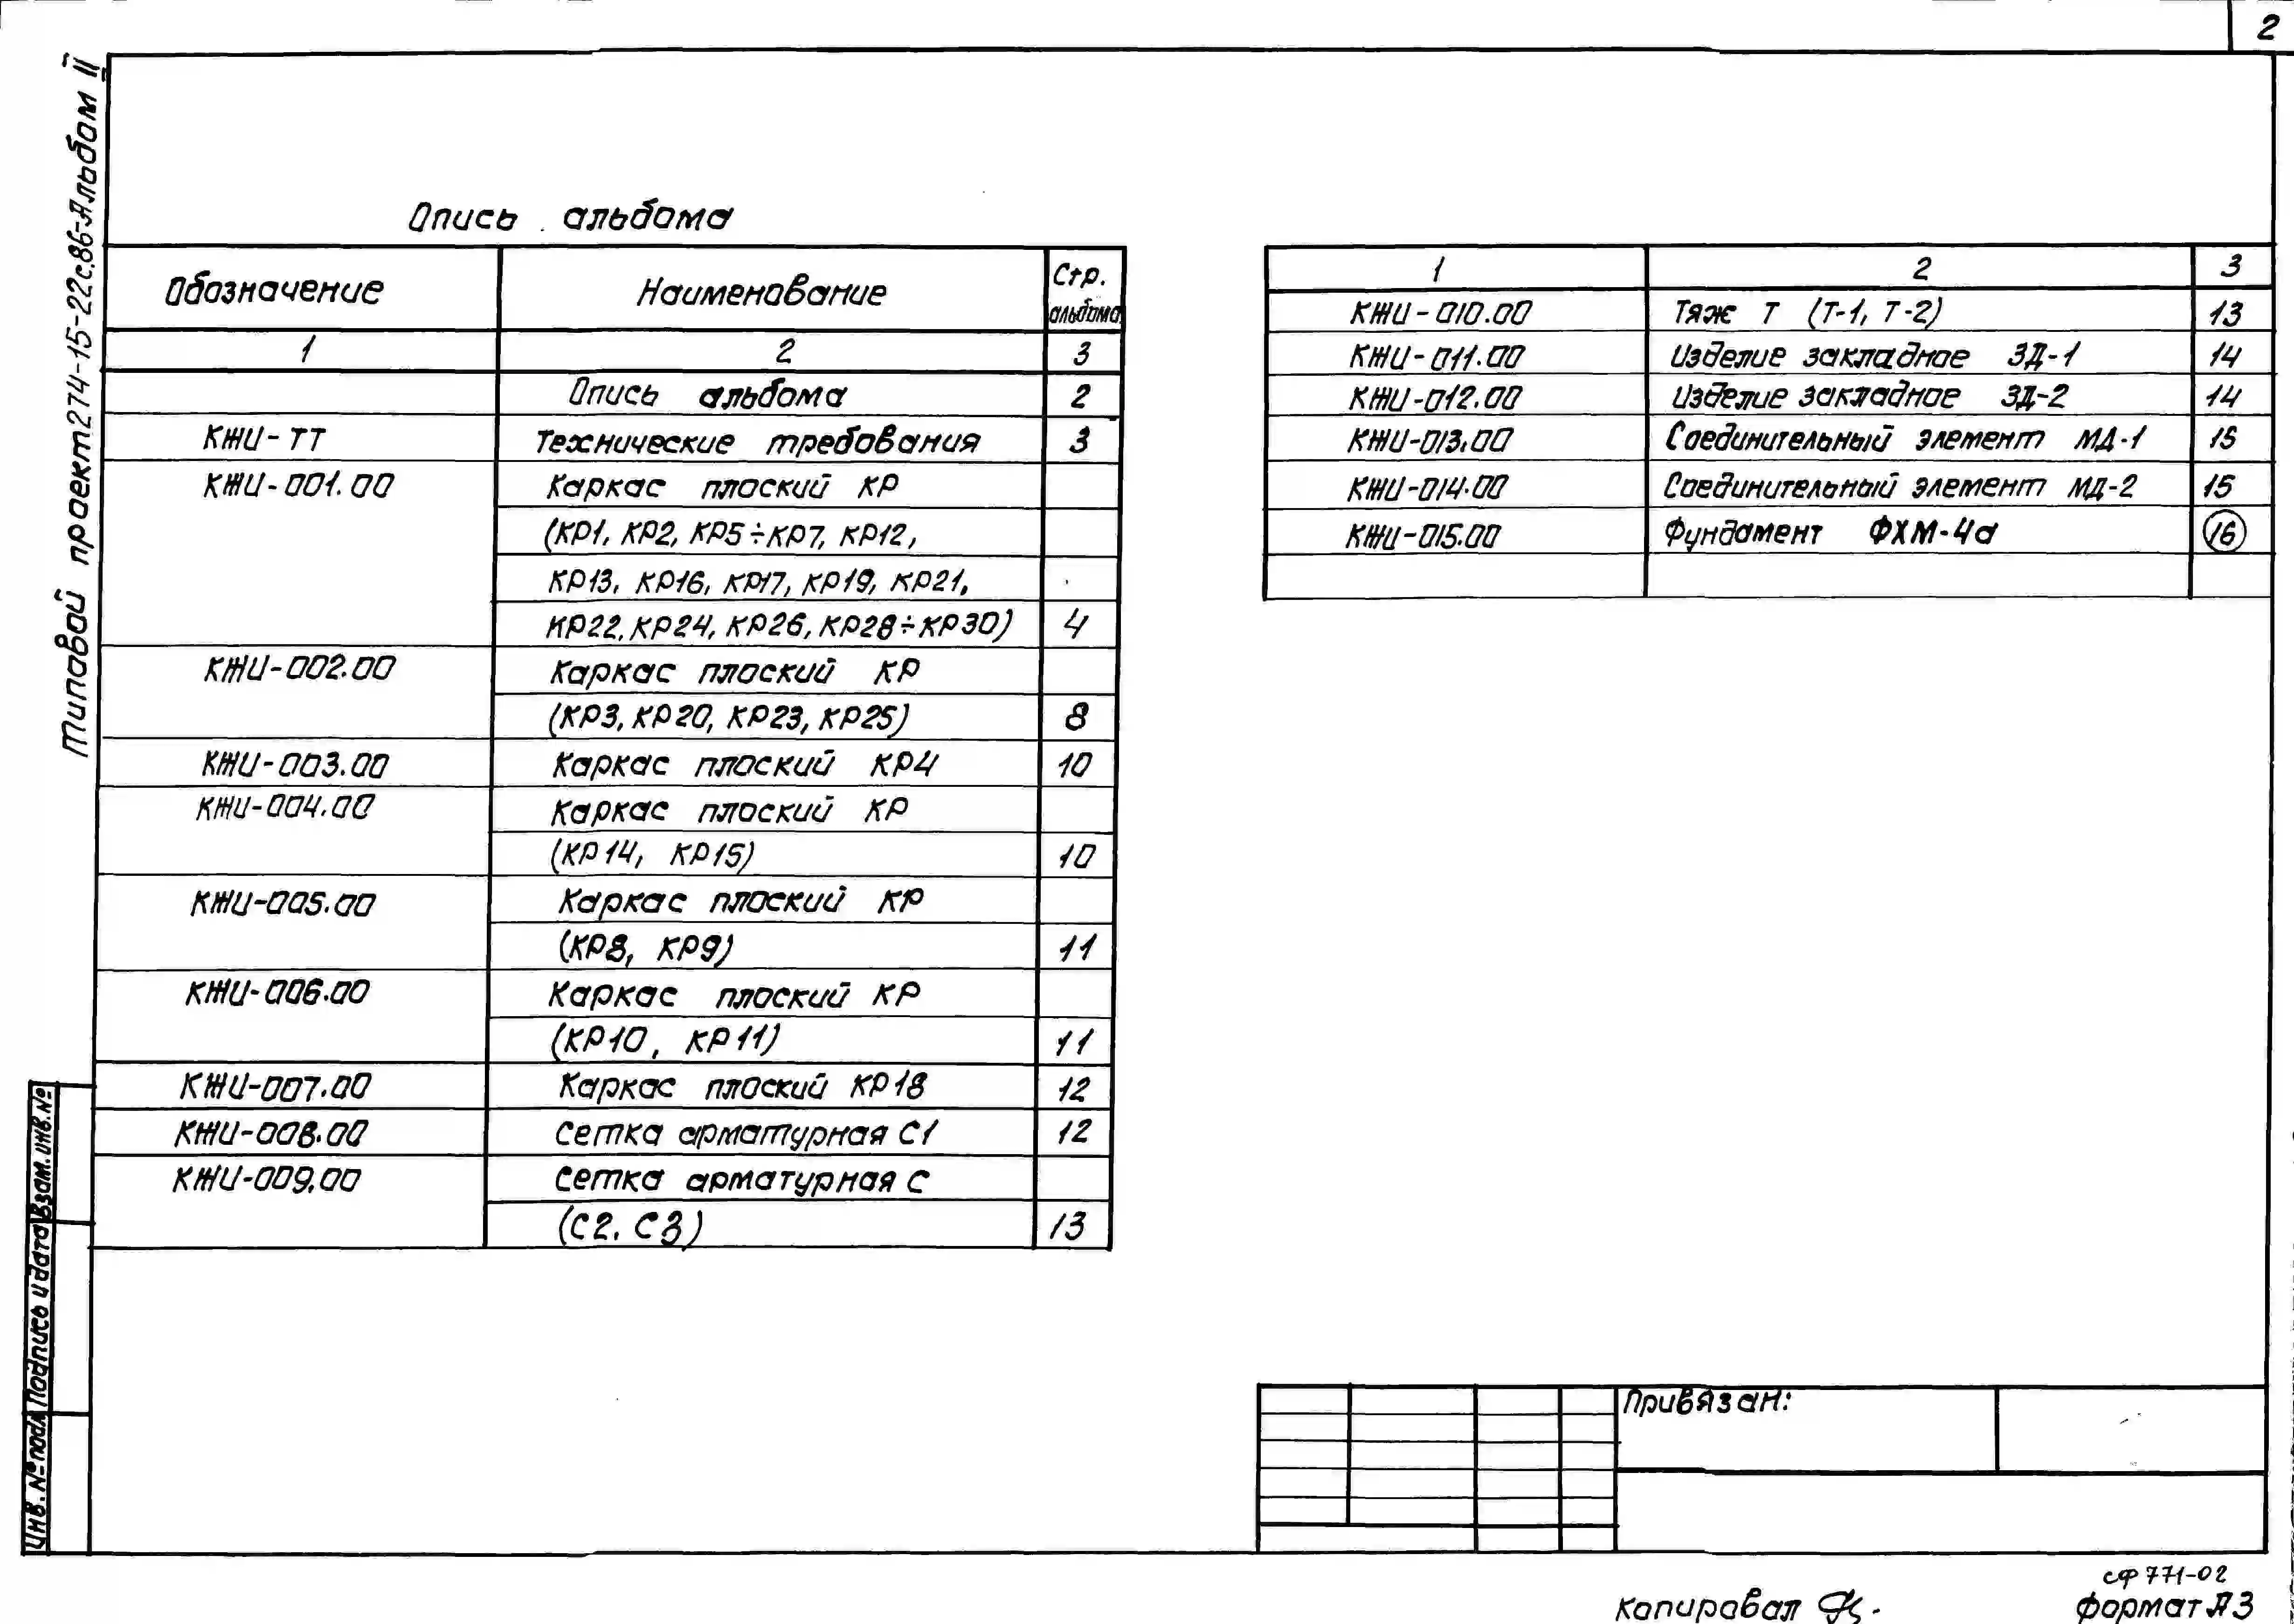 2
Типовой проект 274-15-22с.86-Альбом II
Опись альбома
Обозначение Наименование Стр. альбома
1 2 3
Опись альбома 2
КЖИ-ТТ Технические требования 3
КЖИ-001.00 Каркас плоский КР
(КР1, КР2, КР5÷КР7, КР12,
КР13, КР16, КР17, КР19, КР21,
КР22, КР24, КР26, КР28÷КР30) 4
КЖИ-002.00 Каркас плоский КР
(КР3, КР20, КР23, КР25) 8
КЖИ-003.00 Каркас плоский КР4 10
КЖИ-004.00 Каркас плоский КР
(КР14, КР15) 10
КЖИ-005.00 Каркас плоский КР
(КР8, КР9) 11
КЖИ-006.00 Каркас плоский КР
(КР10, КР11) 11
КЖИ-007.00 Каркас плоский КР18 12
КЖИ-008.00 Сетка арматурная С1 12
КЖИ-009.00 Сетка арматурная С
(С2, С3) 13
1 2 3
КЖИ-010.00 Тяж Т (Т-1, Т-2) 13
КЖИ-011.00 Изделие закладное ЗД-1 14
КЖИ-012.00 Изделие закладное ЗД-2 14
КЖИ-013.00 Соединительный элемент МД-1 15
КЖИ-014.00 Соединительный элемент МД-2 15
КЖИ-015.00 Фундамент ФХМ-4а 16
Инв. № подл. Подпись и дата Взам. инв. №
Привязан:
сф 771-02
Копировал
формат А3